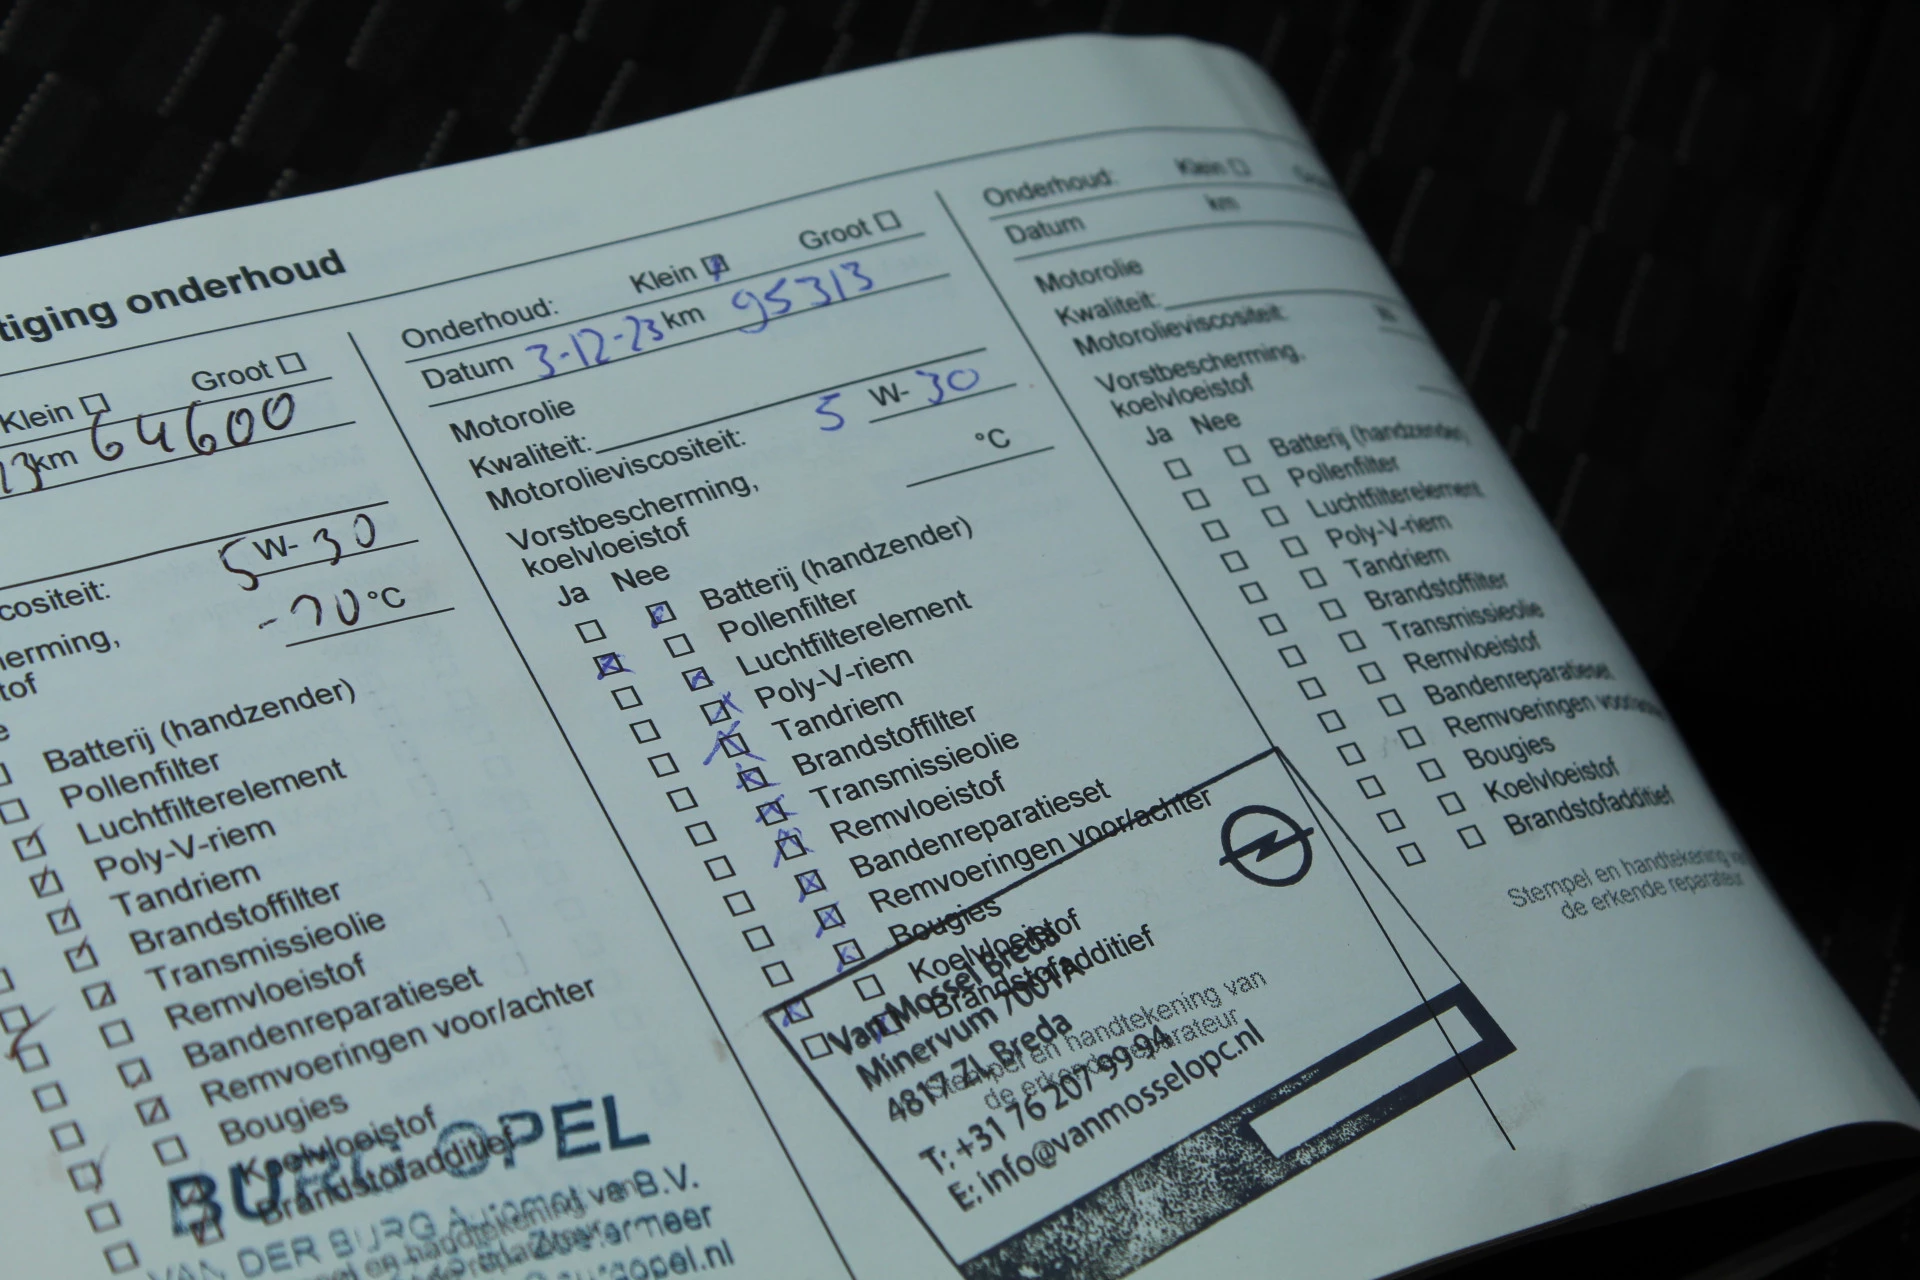 tiging onderhoud
Klein Groot
km 64600
cositeit: 5 W- 30
herming, -70 °C
tof
Batterij (handzender)
Pollenfilter
Luchtfilterelement
Poly-V-riem
Tandriem
Brandstoffilter
Transmissieolie
Remvloeistof
Bandenreparatieset
Remvoeringen voor/achter
Bougies
Koelvloeistof
Brandstofadditief
BURG OPEL
VAN DER BURG Automotive B.V.
Zoetermeer
opel.nl
Onderhoud: Klein Groot
Datum 3-12-23 km 95313
Motorolie
Kwaliteit:
Motorolieviscositeit: 5 W- 30
Vorstbescherming,
koelvloeistof °C
Ja Nee
Batterij (handzender)
Pollenfilter
Luchtfilterelement
Poly-V-riem
Tandriem
Brandstoffilter
Transmissieolie
Remvloeistof
Bandenreparatieset
Remvoeringen voor/achter
Bougies
Koelvloeistof
Brandstofadditief
Stempel en handtekening van
de erkende reparateur
Van Mossel Breda
Minervum 7001A
4817 ZL Breda
T: +31 76 207 99 94
E: info@vanmosselopc.nl
Onderhoud: Klein
Datum km
Motorolie
Kwaliteit:
Motorolieviscositeit:
Vorstbescherming,
koelvloeistof
Ja Nee
Batterij (handzender)
Pollenfilter
Luchtfilterelement
Poly-V-riem
Tandriem
Brandstoffilter
Transmissieolie
Remvloeistof
Bandenreparatieset
Remvoeringen
Bougies
Koelvloeistof
Brandstofadditief
Stempel en handtekening
de erkende reparateur